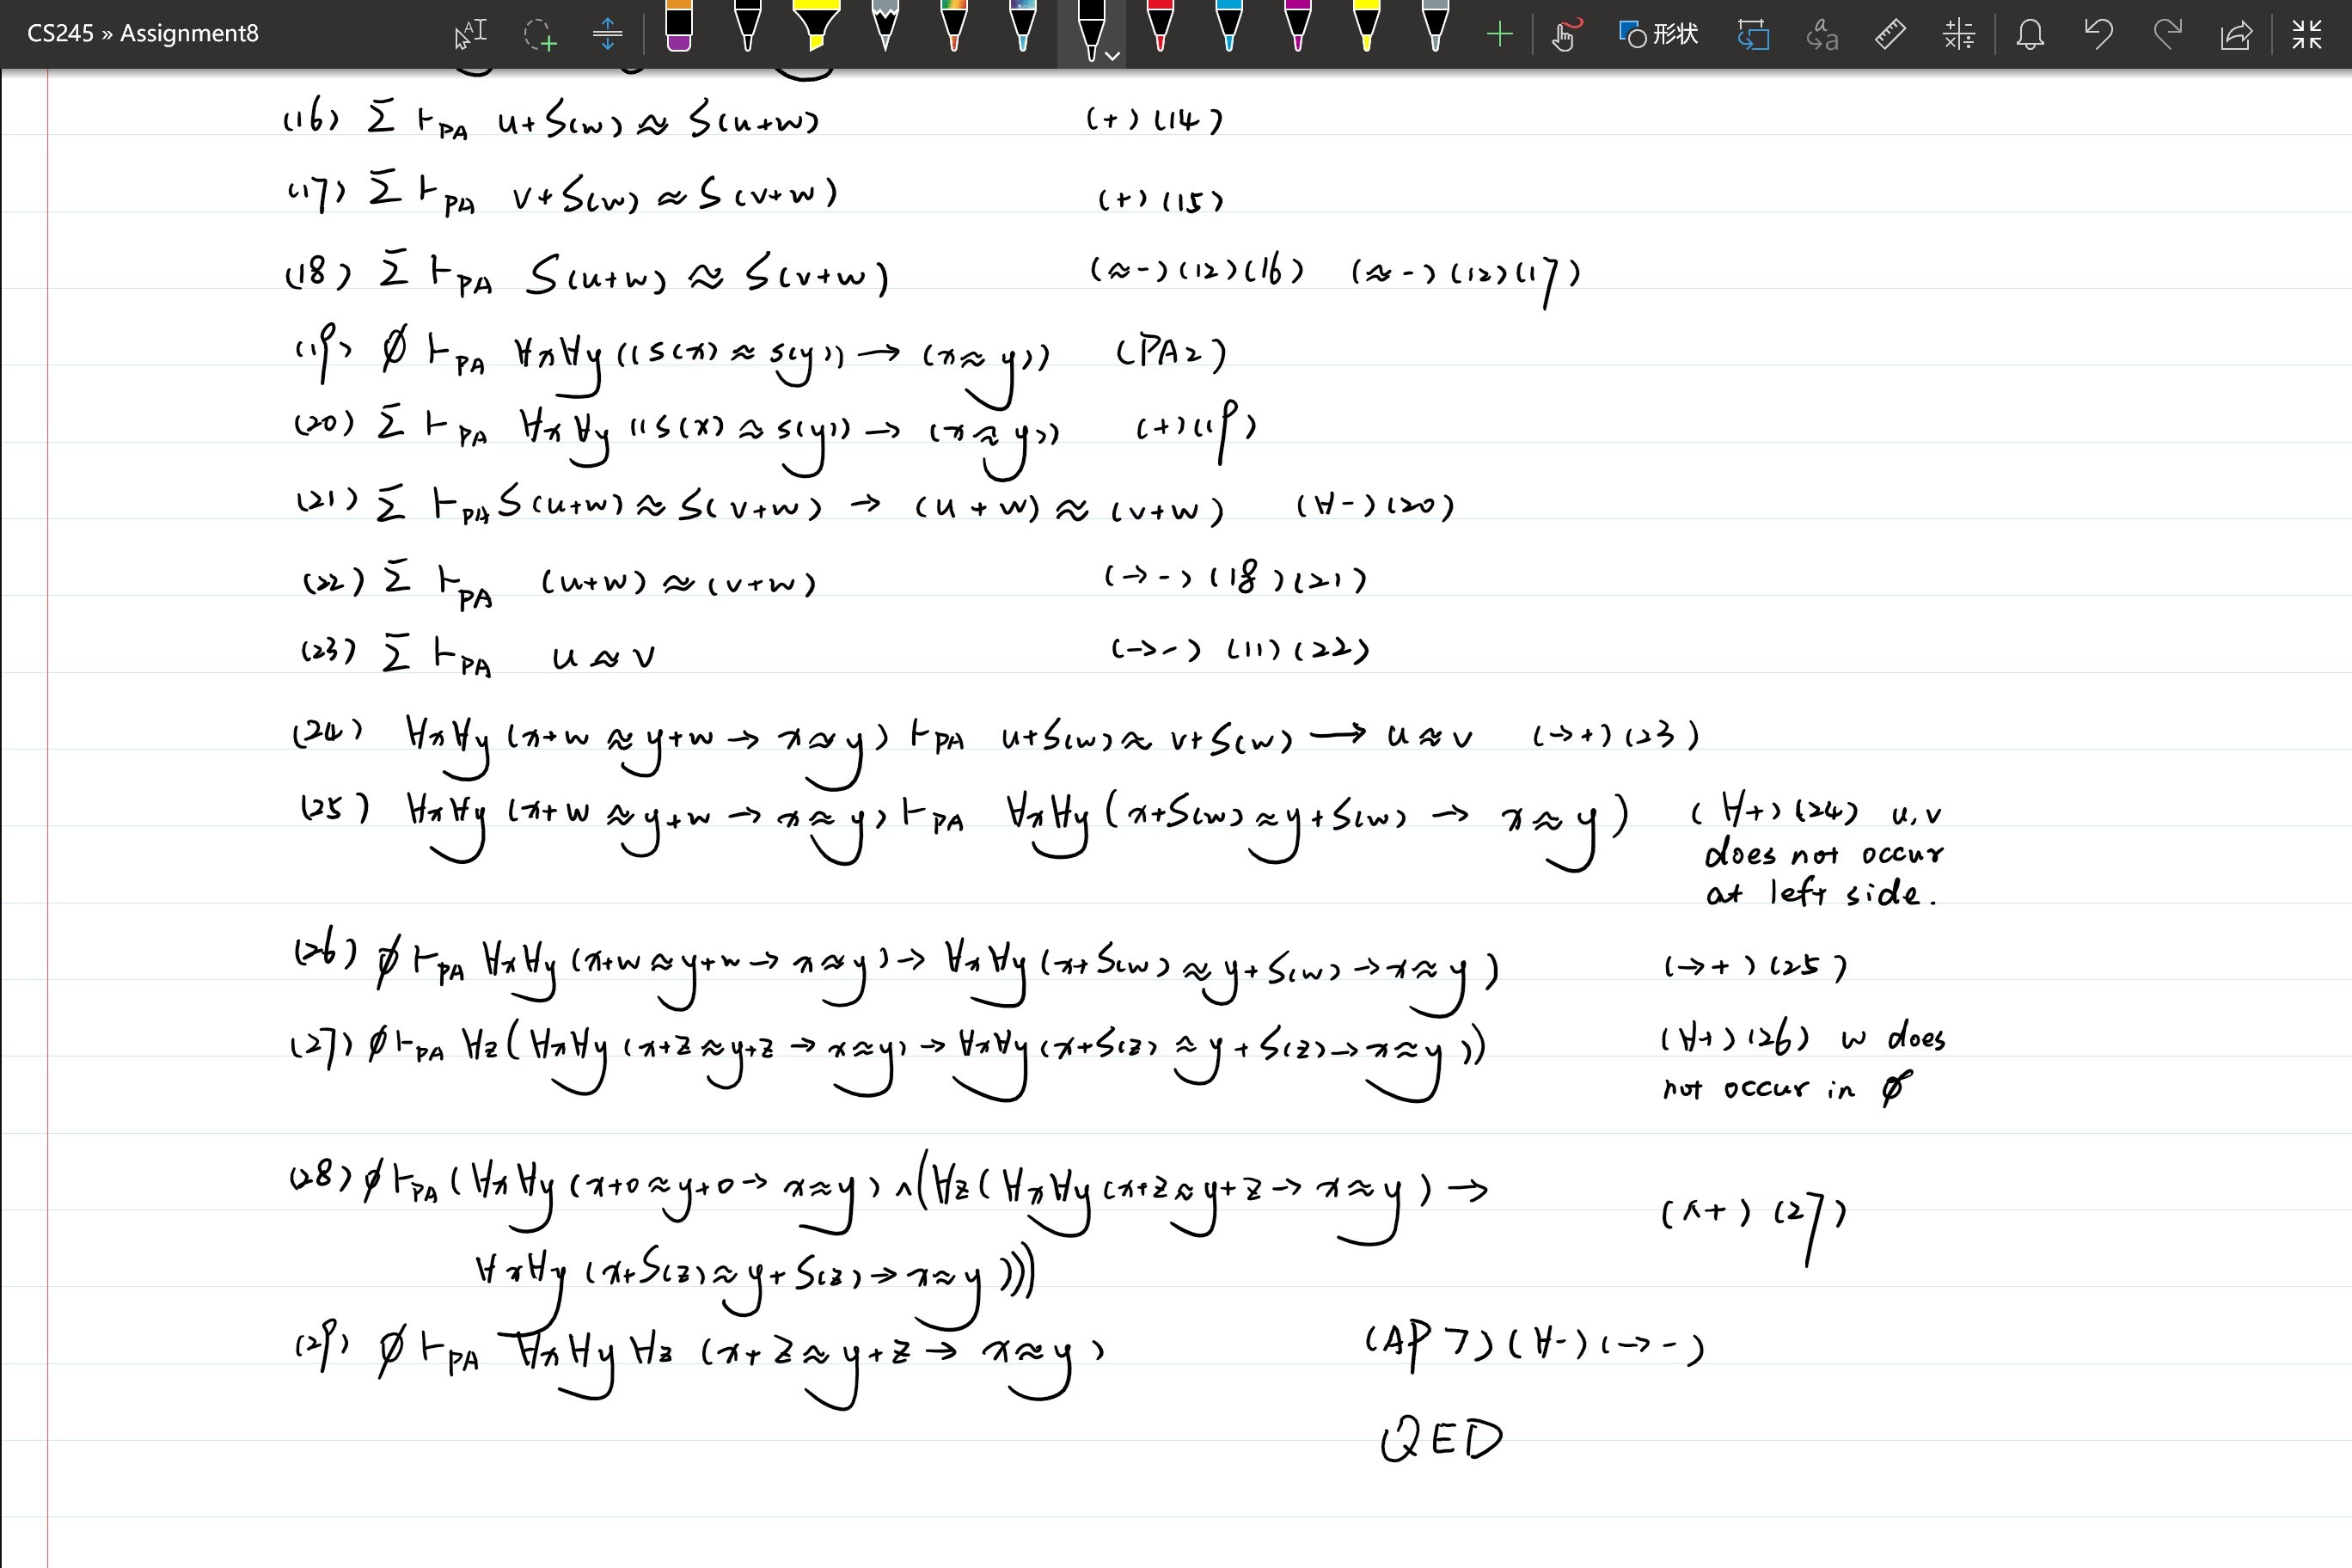 CS245 » Assignment8
形状
(16) Σ ⊢PA u+S(w) ≈ S(u+w) (+) (14)
(17) Σ ⊢PA v+S(w) ≈ S(v+w) (+) (15)
(18) Σ ⊢PA S(u+w) ≈ S(v+w) (≈-) (12) (16) (≈-) (12) (17)
(19) ∅ ⊢PA ∀x∀y((S(x) ≈ S(y)) → (x≈y)) (PA2)
(20) Σ ⊢PA ∀x∀y((S(x) ≈ S(y)) → (x≈y)) (+) (19)
(21) Σ ⊢PA S(u+w) ≈ S(v+w) → (u+w) ≈ (v+w) (∀-) (20)
(22) Σ ⊢PA (u+w) ≈ (v+w) (→-) (18) (21)
(23) Σ ⊢PA u≈v (→-) (11) (22)
(24) ∀x∀y(x+w ≈ y+w → x≈y) ⊢PA u+S(w) ≈ v+S(w) → u≈v (→+) (23)
(25) ∀x∀y(x+w ≈ y+w → x≈y) ⊢PA ∀x∀y(x+S(w) ≈ y+S(w) → x≈y) (∀+) (24) u,v
does not occur
at left side.
(26) ∅ ⊢PA ∀x∀y(x+w ≈ y+w → x≈y) → ∀x∀y(x+S(w) ≈ y+S(w) → x≈y) (→+) (25)
(27) ∅ ⊢PA ∀z(∀x∀y(x+z ≈ y+z → x≈y) → ∀x∀y(x+S(z) ≈ y+S(z) → x≈y)) (∀+) (26) w does
not occur in ∅
(28) ∅ ⊢PA (∀x∀y(x+0 ≈ y+0 → x≈y) ∧ (∀z(∀x∀y(x+z ≈ y+z → x≈y) → (∧+) (27)
∀x∀y(x+S(z) ≈ y+S(z) → x≈y)))
(29) ∅ ⊢PA ∀x∀y∀z(x+z ≈ y+z → x≈y) (AP7) (∀-) (→-)
QED